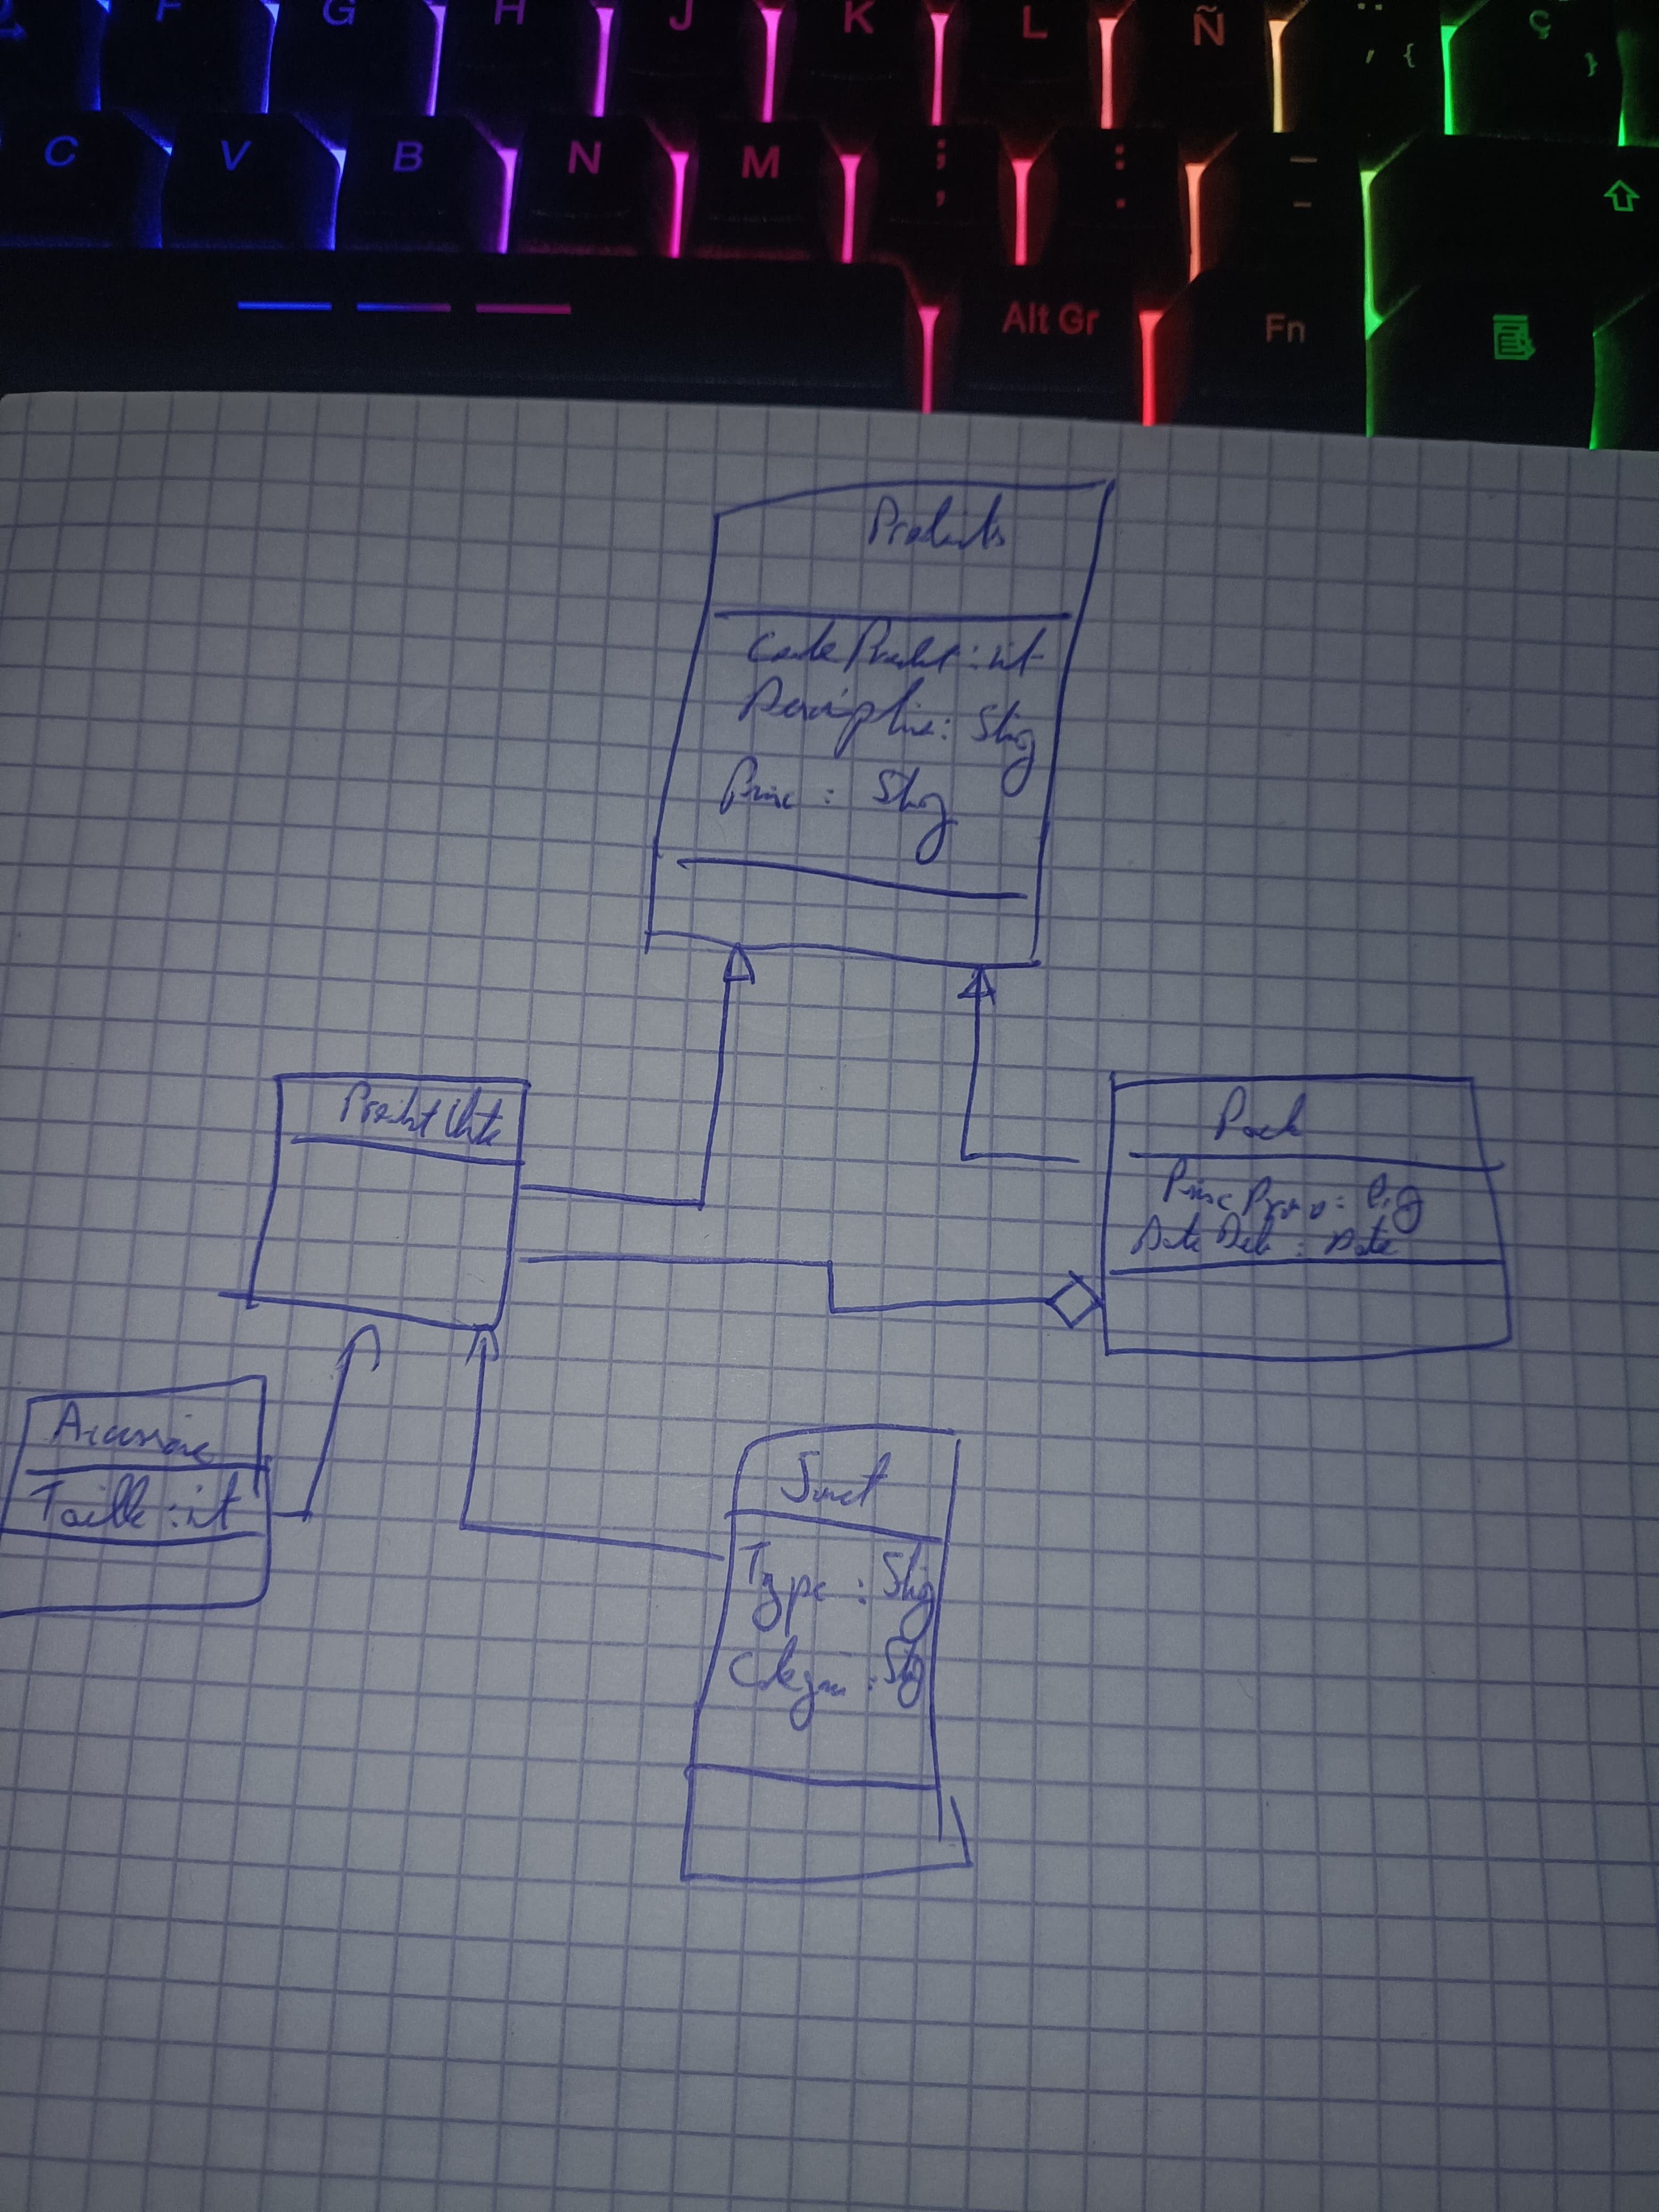 F G H J K L Ñ ¨ ´ { Ç }
C V B N M ; , : . _ -
Alt Gr Fn
Produits
Code Produit : int
Description : String
Prix : String
Produit Unite
Pack
Prix Promo :
Date Deb : Date
Accessoire
Taille : int
Type : String